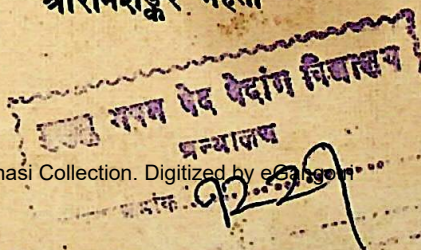 श्रीरामशङ्कर मेहता
भवन वेद वेदांग विद्यालय
ग्रन्थालय
nasi Collection. Digitized by eGangotri
क्रमांक १२२१